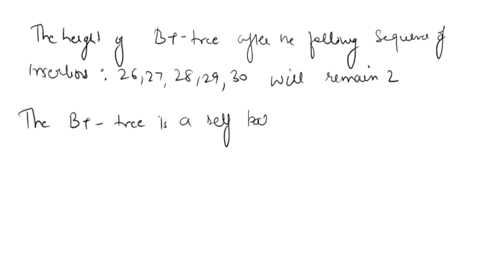 The height of B+-tree after the following Sequence of
Insertions : 26,27, 28, 29, 30 will remain 2
The B+- tree is a self ba